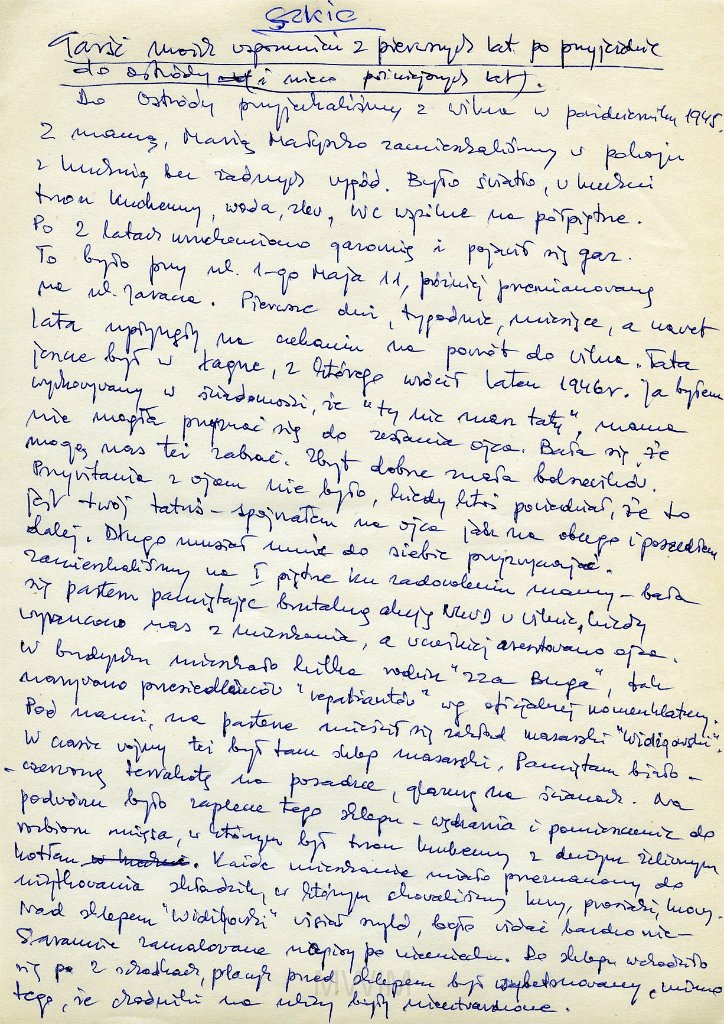 Szkic
Garść moich wspomnień z pierwszych lat po przyjeździe
do Ostródy (i nieco późniejszych lat).
Do Ostródy przyjechaliśmy z Wilna w październiku 1945.
Z mamą, Marią Małyszko zamieszkaliśmy w pokoju
z kuchnią bez żadnych wygód. Było światło, w kuchni
tron kuchenny, woda, zlew, WC wspólne na półpiętrze.
Po 2 latach uruchomiono gazownię i pojawił się gaz.
To było przy ul. 1-go Maja 11, później przemianowaną
na ul. Jaracza. Pierwsze dni, tygodnie, miesiące, a nawet
lata upłynęły na czekaniu na powrót do Wilna. Tata
jeszcze był w łagrze, z którego wrócił latem 1946r. Ja byłem
wychowywany w świadomości, że "ty nie masz taty", mama
nie mogła przyznać się do zesłania ojca. Bała się, że
mogą nas też zabrać. Zbyt dobrze znała bolszewików.
Przywitania z ojcem nie było, kiedy ktoś powiedział, że to
jest twój tatuś - spojrzałem na ojca jak na obcego i poszedłem
dalej. Długo musiał mnie do siebie przyzwyczajać.
Zamieszkaliśmy na I piętrze ku zadowoleniu mamy - bała
się parteru pamiętając brutalną akcję NKWD w Wilnie, kiedy
wyrzucono nas z mieszkania, a wcześniej aresztowano ojca.
W budynku mieszkało kilka rodzin "zza Buga", tak
nazywano przesiedleńców "repatriantów" wg oficjalnej nomenklatury.
Pod nami, na parterze mieścił się zakład masarski "Widigowski".
W czasie wojny też był tam sklep masarski. Pamiętam biało-
-czerwoną terrakotę na posadzce, glazurę na ścianach. Na
podwórzu było zaplecze tego sklepu - wędzarnia i pomieszczenie do
rozbioru mięsa, w którym był tron kuchenny z dużym żeliwnym
kotłem. Każde mieszkanie miało przeznaczony do
użytkowania składzik, w którym chowaliśmy kury, prosiaki, krowy.
Nad sklepem "Widigowski" wisiał szyld, było widać bardzo nie-
starannie zamalowane napisy po niemiecku. Do sklepu wchodziło
się po 2 schodkach, placyk przed sklepem był wybetonowany, mimo
tego, że chodniki na ulicy były nieutwardzone.
MWM